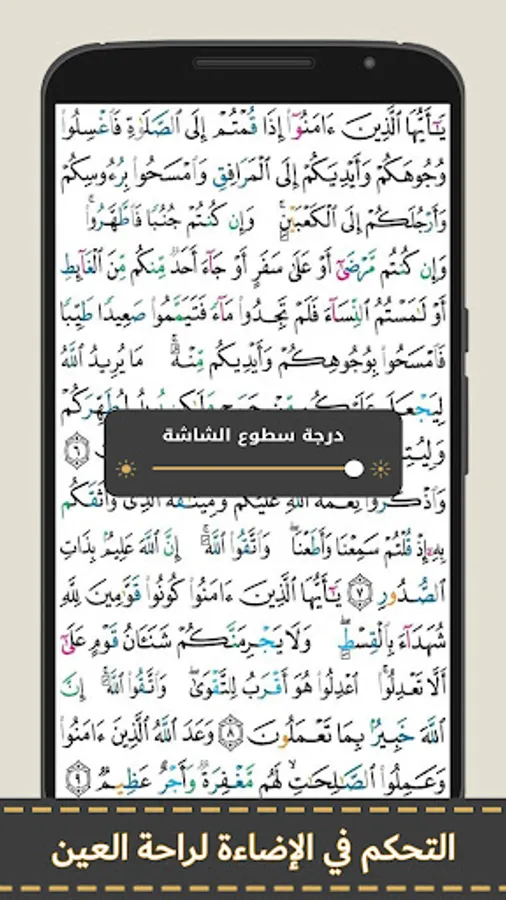 يَـٰٓأَيُّهَا ٱلَّذِينَ ءَامَنُوٓا۟ إِذَا قُمْتُمْ إِلَى ٱلصَّلَوٰةِ فَٱغْسِلُوا۟
وُجُوهَكُمْ وَأَيْدِيَكُمْ إِلَى ٱلْمَرَافِقِ وَٱمْسَحُوا۟ بِرُءُوسِكُمْ
وَأَرْجُلَكُمْ إِلَى ٱلْكَعْبَيْنِ ۚ وَإِن كُنتُمْ جُنُبًا فَٱطَّهَّرُوا۟ ۚ
وَإِن كُنتُم مَّرْضَىٰٓ أَوْ عَلَىٰ سَفَرٍ أَوْ جَآءَ أَحَدٌ مِّنكُم مِّنَ ٱلْغَآئِطِ
أَوْ لَـٰمَسْتُمُ ٱلنِّسَآءَ فَلَمْ تَجِدُوا۟ مَآءً فَتَيَمَّمُوا۟ صَعِيدًا طَيِّبًا
فَٱمْسَحُوا۟ بِوُجُوهِكُمْ وَأَيْدِيكُم مِّنْهُ ۚ مَا يُرِيدُ ٱللَّهُ
لِيَجْعَلَ عَلَيْكُم مِّنْ حَرَجٍ وَلَـٰكِن يُرِيدُ لِيُطَهِّرَكُمْ
٦
درجة سطوع الشاشة
وَٱذْكُرُوا۟ نِعْمَةَ ٱللَّهِ عَلَيْكُمْ وَمِيثَـٰقَهُ ٱلَّذِى وَاثَقَكُم
بِهِۦٓ إِذْ قُلْتُمْ سَمِعْنَا وَأَطَعْنَا ۖ وَٱتَّقُوا۟ ٱللَّهَ ۚ إِنَّ ٱللَّهَ عَلِيمٌۢ بِذَاتِ
ٱلصُّدُورِ ٧ يَـٰٓأَيُّهَا ٱلَّذِينَ ءَامَنُوا۟ كُونُوا۟ قَوَّٰمِينَ لِلَّهِ
شُهَدَآءَ بِٱلْقِسْطِ ۖ وَلَا يَجْرِمَنَّكُمْ شَنَـَٔانُ قَوْمٍ عَلَىٰٓ
أَلَّا تَعْدِلُوا۟ ۚ ٱعْدِلُوا۟ هُوَ أَقْرَبُ لِلتَّقْوَىٰ ۖ وَٱتَّقُوا۟ ٱللَّهَ ۚ إِنَّ
ٱللَّهَ خَبِيرٌۢ بِمَا تَعْمَلُونَ ٨ وَعَدَ ٱللَّهُ ٱلَّذِينَ ءَامَنُوا۟
وَعَمِلُوا۟ ٱلصَّـٰلِحَـٰتِ ۙ لَهُم مَّغْفِرَةٌ وَأَجْرٌ عَظِيمٌ ٩
التحكم في الإضاءة لراحة العين